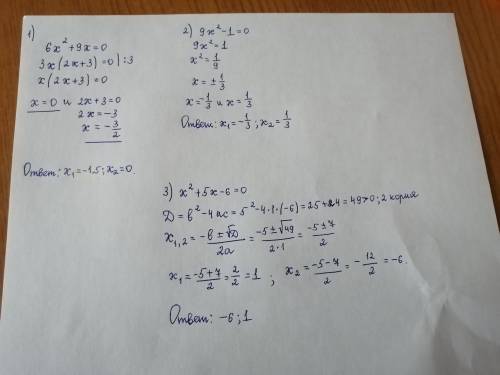 1)
6x² + 9x = 0
3x(2x+3) = 0 | :3
x(2x+3) = 0
x = 0 и 2x+3 = 0
2x = -3
x = -3/2
Ответ: x₁ = -1.5; x₂ = 0.
2) 9x² - 1 = 0
9x² = 1
x² = 1/9
x = ± 1/3
x = -1/3 и x = 1/3
Ответ: x₁ = -1/3; x₂ = 1/3
3) x² + 5x - 6 = 0
D = b² - 4ac = 5² - 4·1·(-6) = 25 + 24 = 49 > 0; 2 корня
x₁,₂ = (-b ± √D)/2a = (-5 ± √49)/2·1 = (-5 ± 7)/2
x₁ = (-5+7)/2 = 2/2 = 1 ; x₂ = (-5-7)/2 = -12/2 = -6.
Ответ: -6; 1